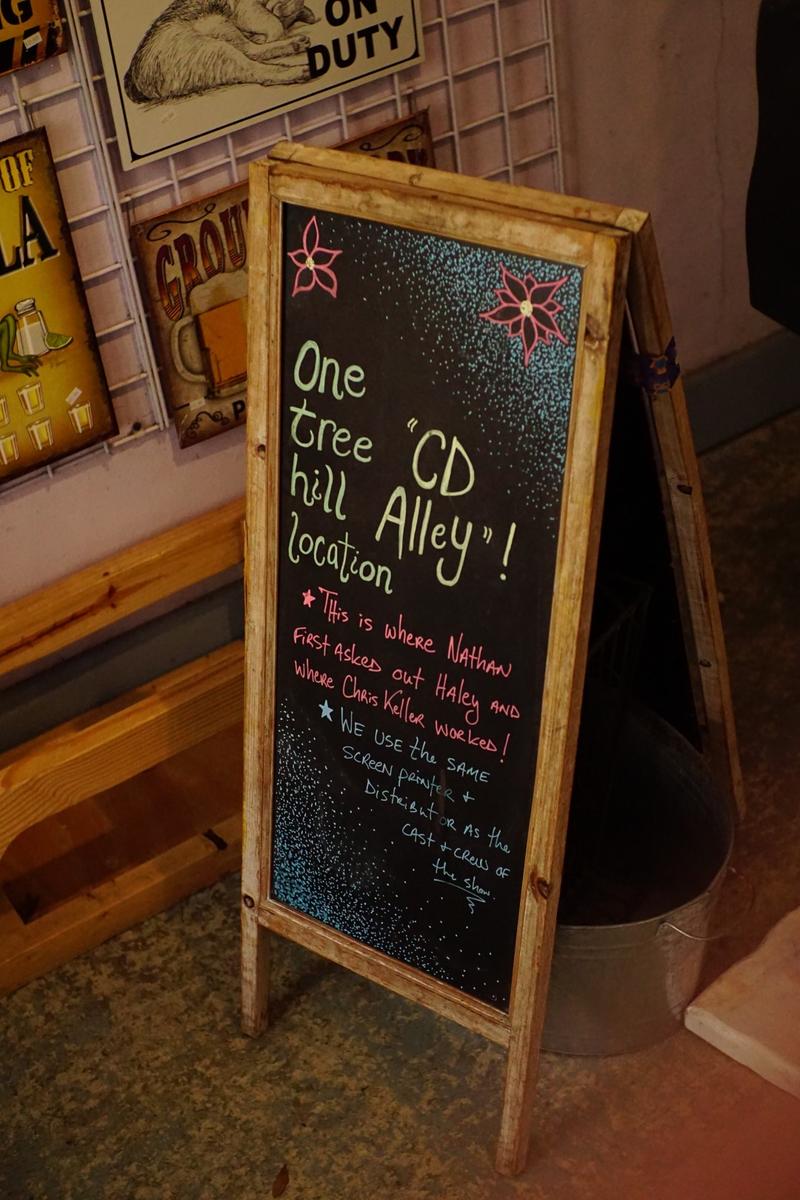 NG
ON
DUTY
OF
LA
GROU
One
tree
hill
location
"CD
Alley"!
★ THis is where Nathan
First Asked out Haley and
where Chris Keller worked!
★ We use the same
screen printer +
Distributor as the
cast + crew of
the show.